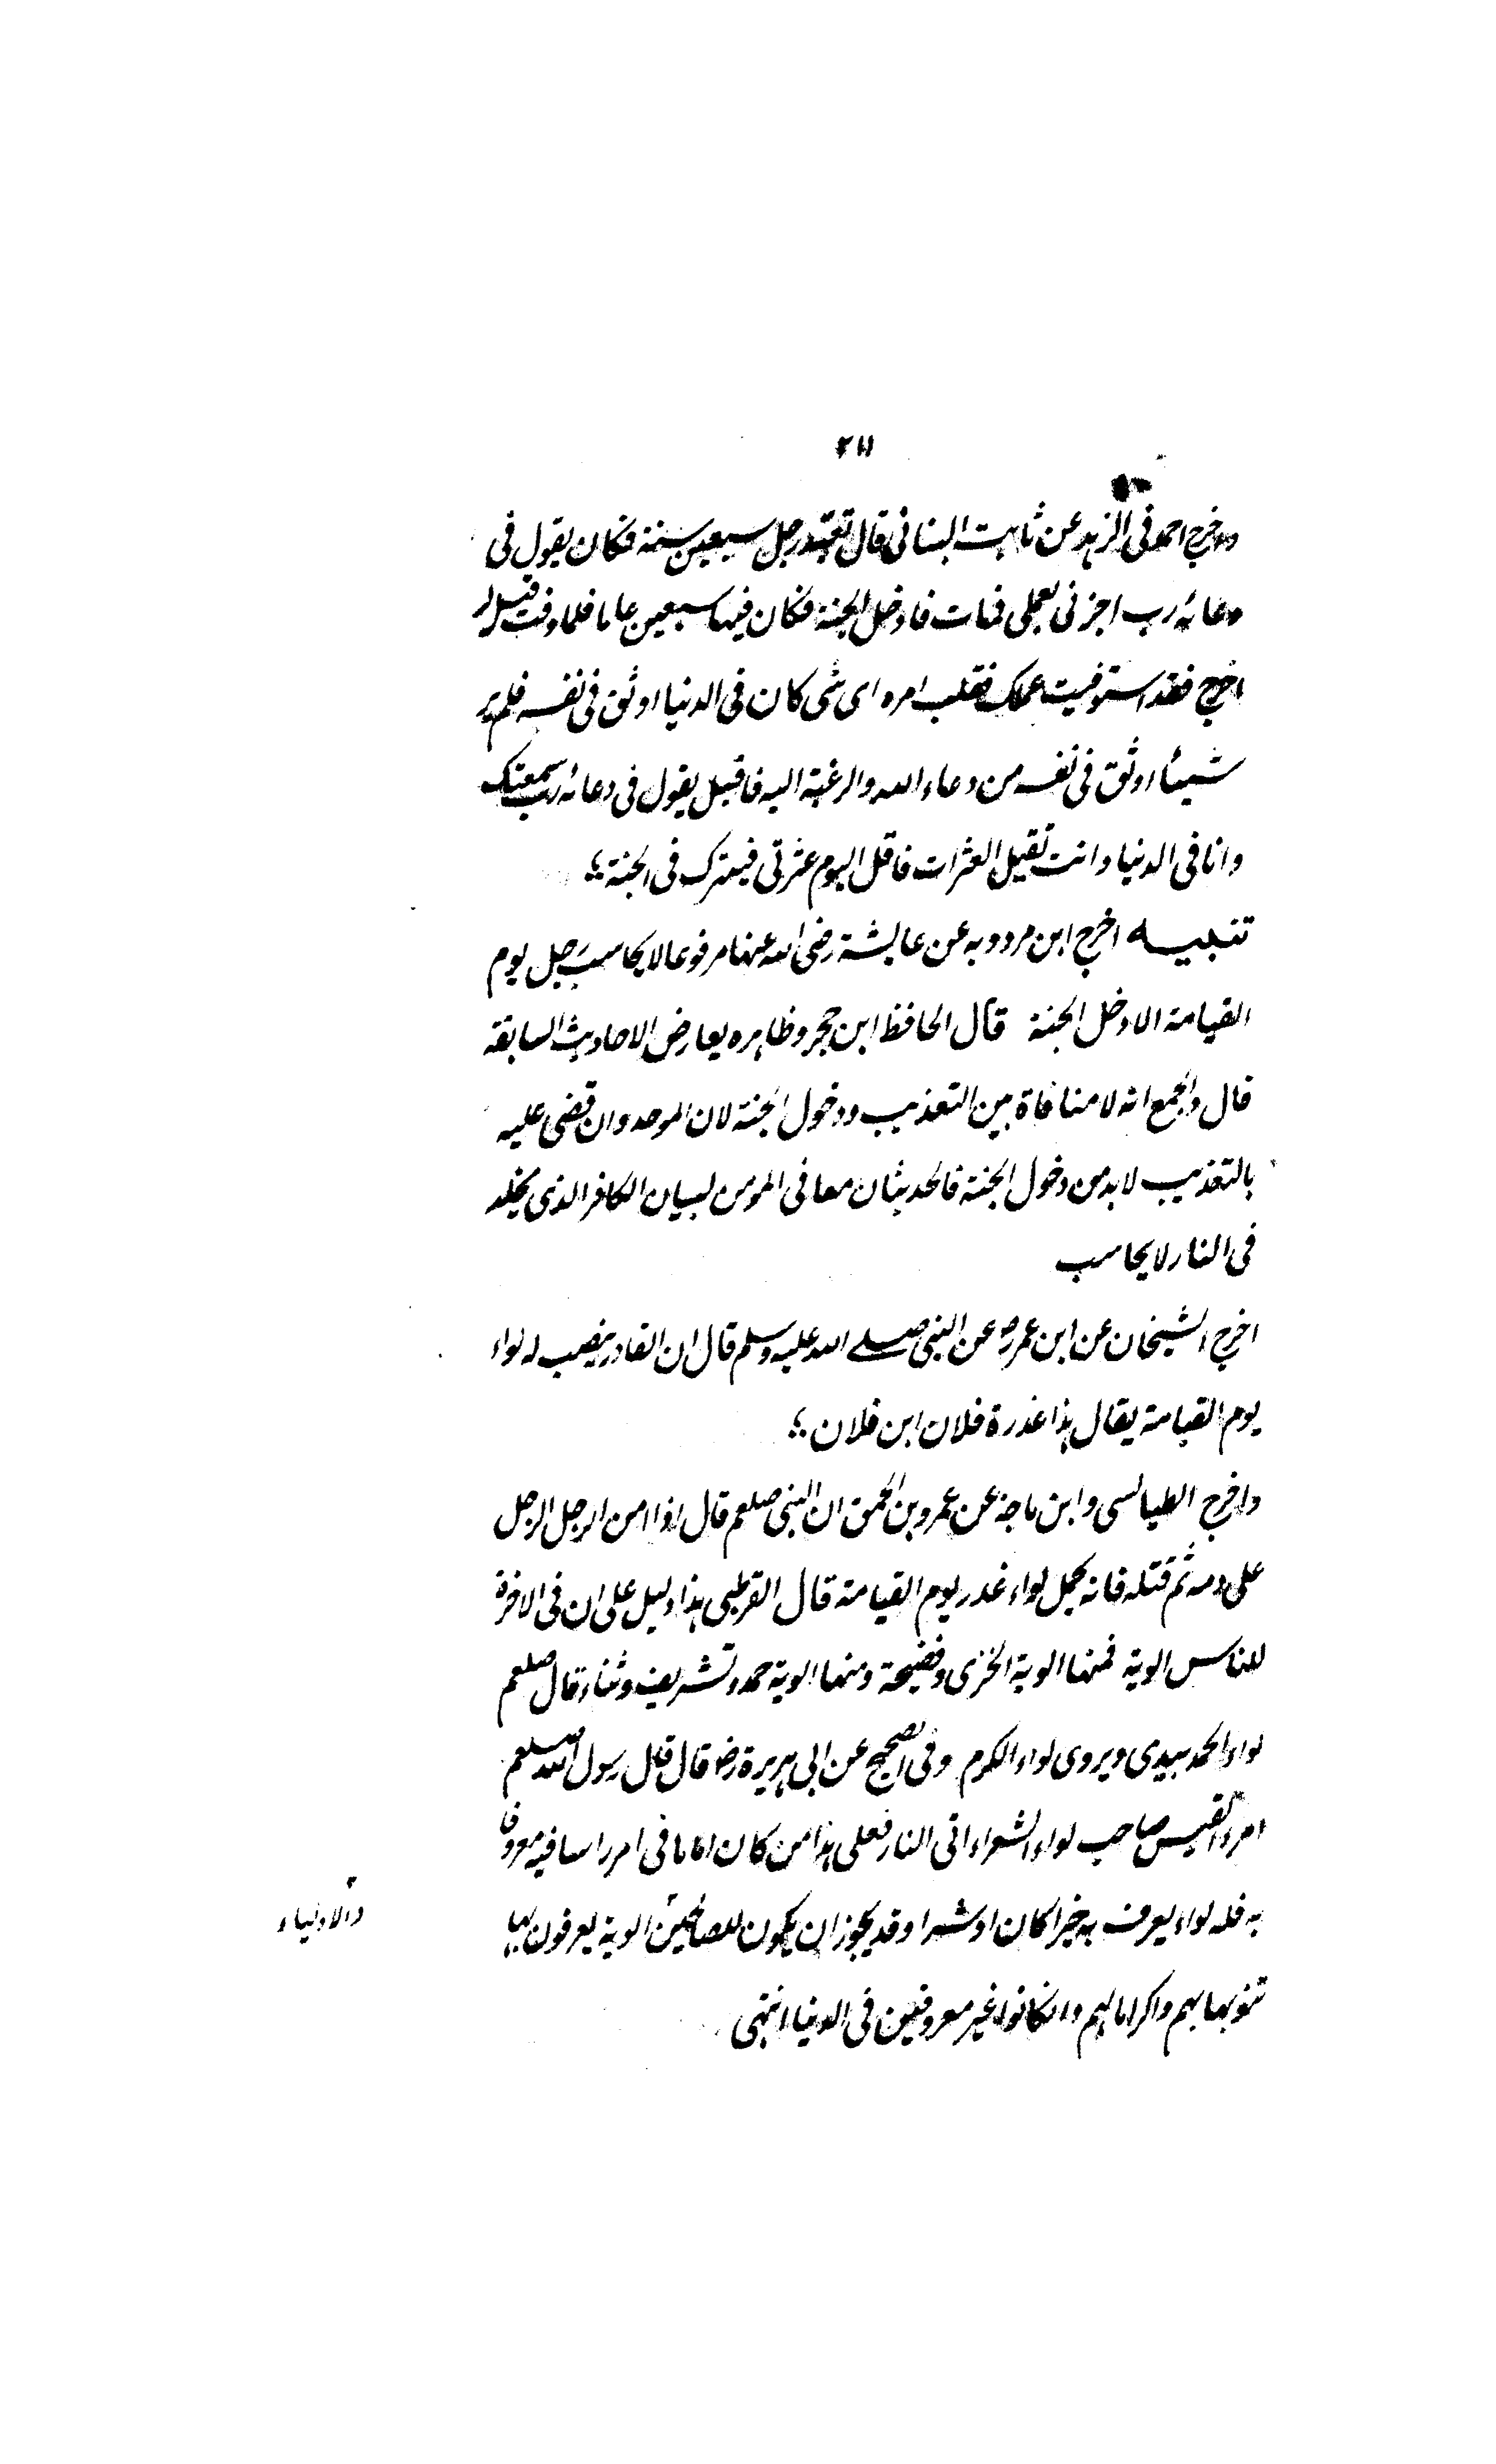 ٢١١
واخرج احمد فى الزهد عن ثابت البنانى قال تعبد رجل سبعين سنة فكان يقول فى
دعائه رب اجزنى بعملى فمات فادخل الجنة فكان فيها سبعين عاما فلما وفت قيل له
اخرج فقد استوفيت عملك فقلب امره اى شى كان فى الدنيا اوثق فى نفسه فلم ير
شيئا اوثق فى نفسه من دعاء الله والرغبة اليه فاقبل يقول فى دعائه رب سمعتك
وانا فى الدنيا وانت تقيل العثرات فاقل اليوم عثرتى فيترك فى الجنة
تنبيه اخرج ابن مردويه عن عايشة رضى الله عنها مرفوعا لا يحاسب رجل يوم
القيامة الا دخل الجنة قال الحافظ ابن حجر وظاهره يعارض الاحاديث السابقة
قال والجمع انه لا منافاة بين التعذيب ودخول الجنة لان الموحد وان قضى عليه
بالتعذيب لابد من دخول الجنة فالحديثان معا فى المومن لبيان الكافر الذى يخلد
فى النار لا يحاسب
اخرج الشيخان عن ابن عمر رض عن النبى صلے الله عليه وسلم قال ان الغادر ينصب له لواء
يوم القيامة يقال هذا غدرة فلان ابن فلان
واخرج الطيالسى وابن ماجة عن عمرو بن الحمق ان النبى صلعم قال اذا امن الرجل الرجل
على دمه ثم قتله فانه يحمل لواء غدر يوم القيامة قال القرطبى هذا دليل على ان فى الاخرة
للناس الوية فمنها الوية الخزى وفضيحة ومنها الوية حمد وتشريف وثناء قال صلعم
لواء الحمد بيدى ويروى لواء الكرم وفى الصحيح عن ابى هريرة رض قال قال رسول الله صلعم
امرء القيس صاحب لواء الشعراء الى النار فعلى هذا من كان اماما فى امر راسا فيه معروفا
به فله لواء يعرف به خيرا كان او شرا وقد يجوز ان يكون للصالحين الوية يعرفون بها
والاولياء
تنويها بهم واكراما لهم وان كانوا غير معروفين فى الدنيا انتهى